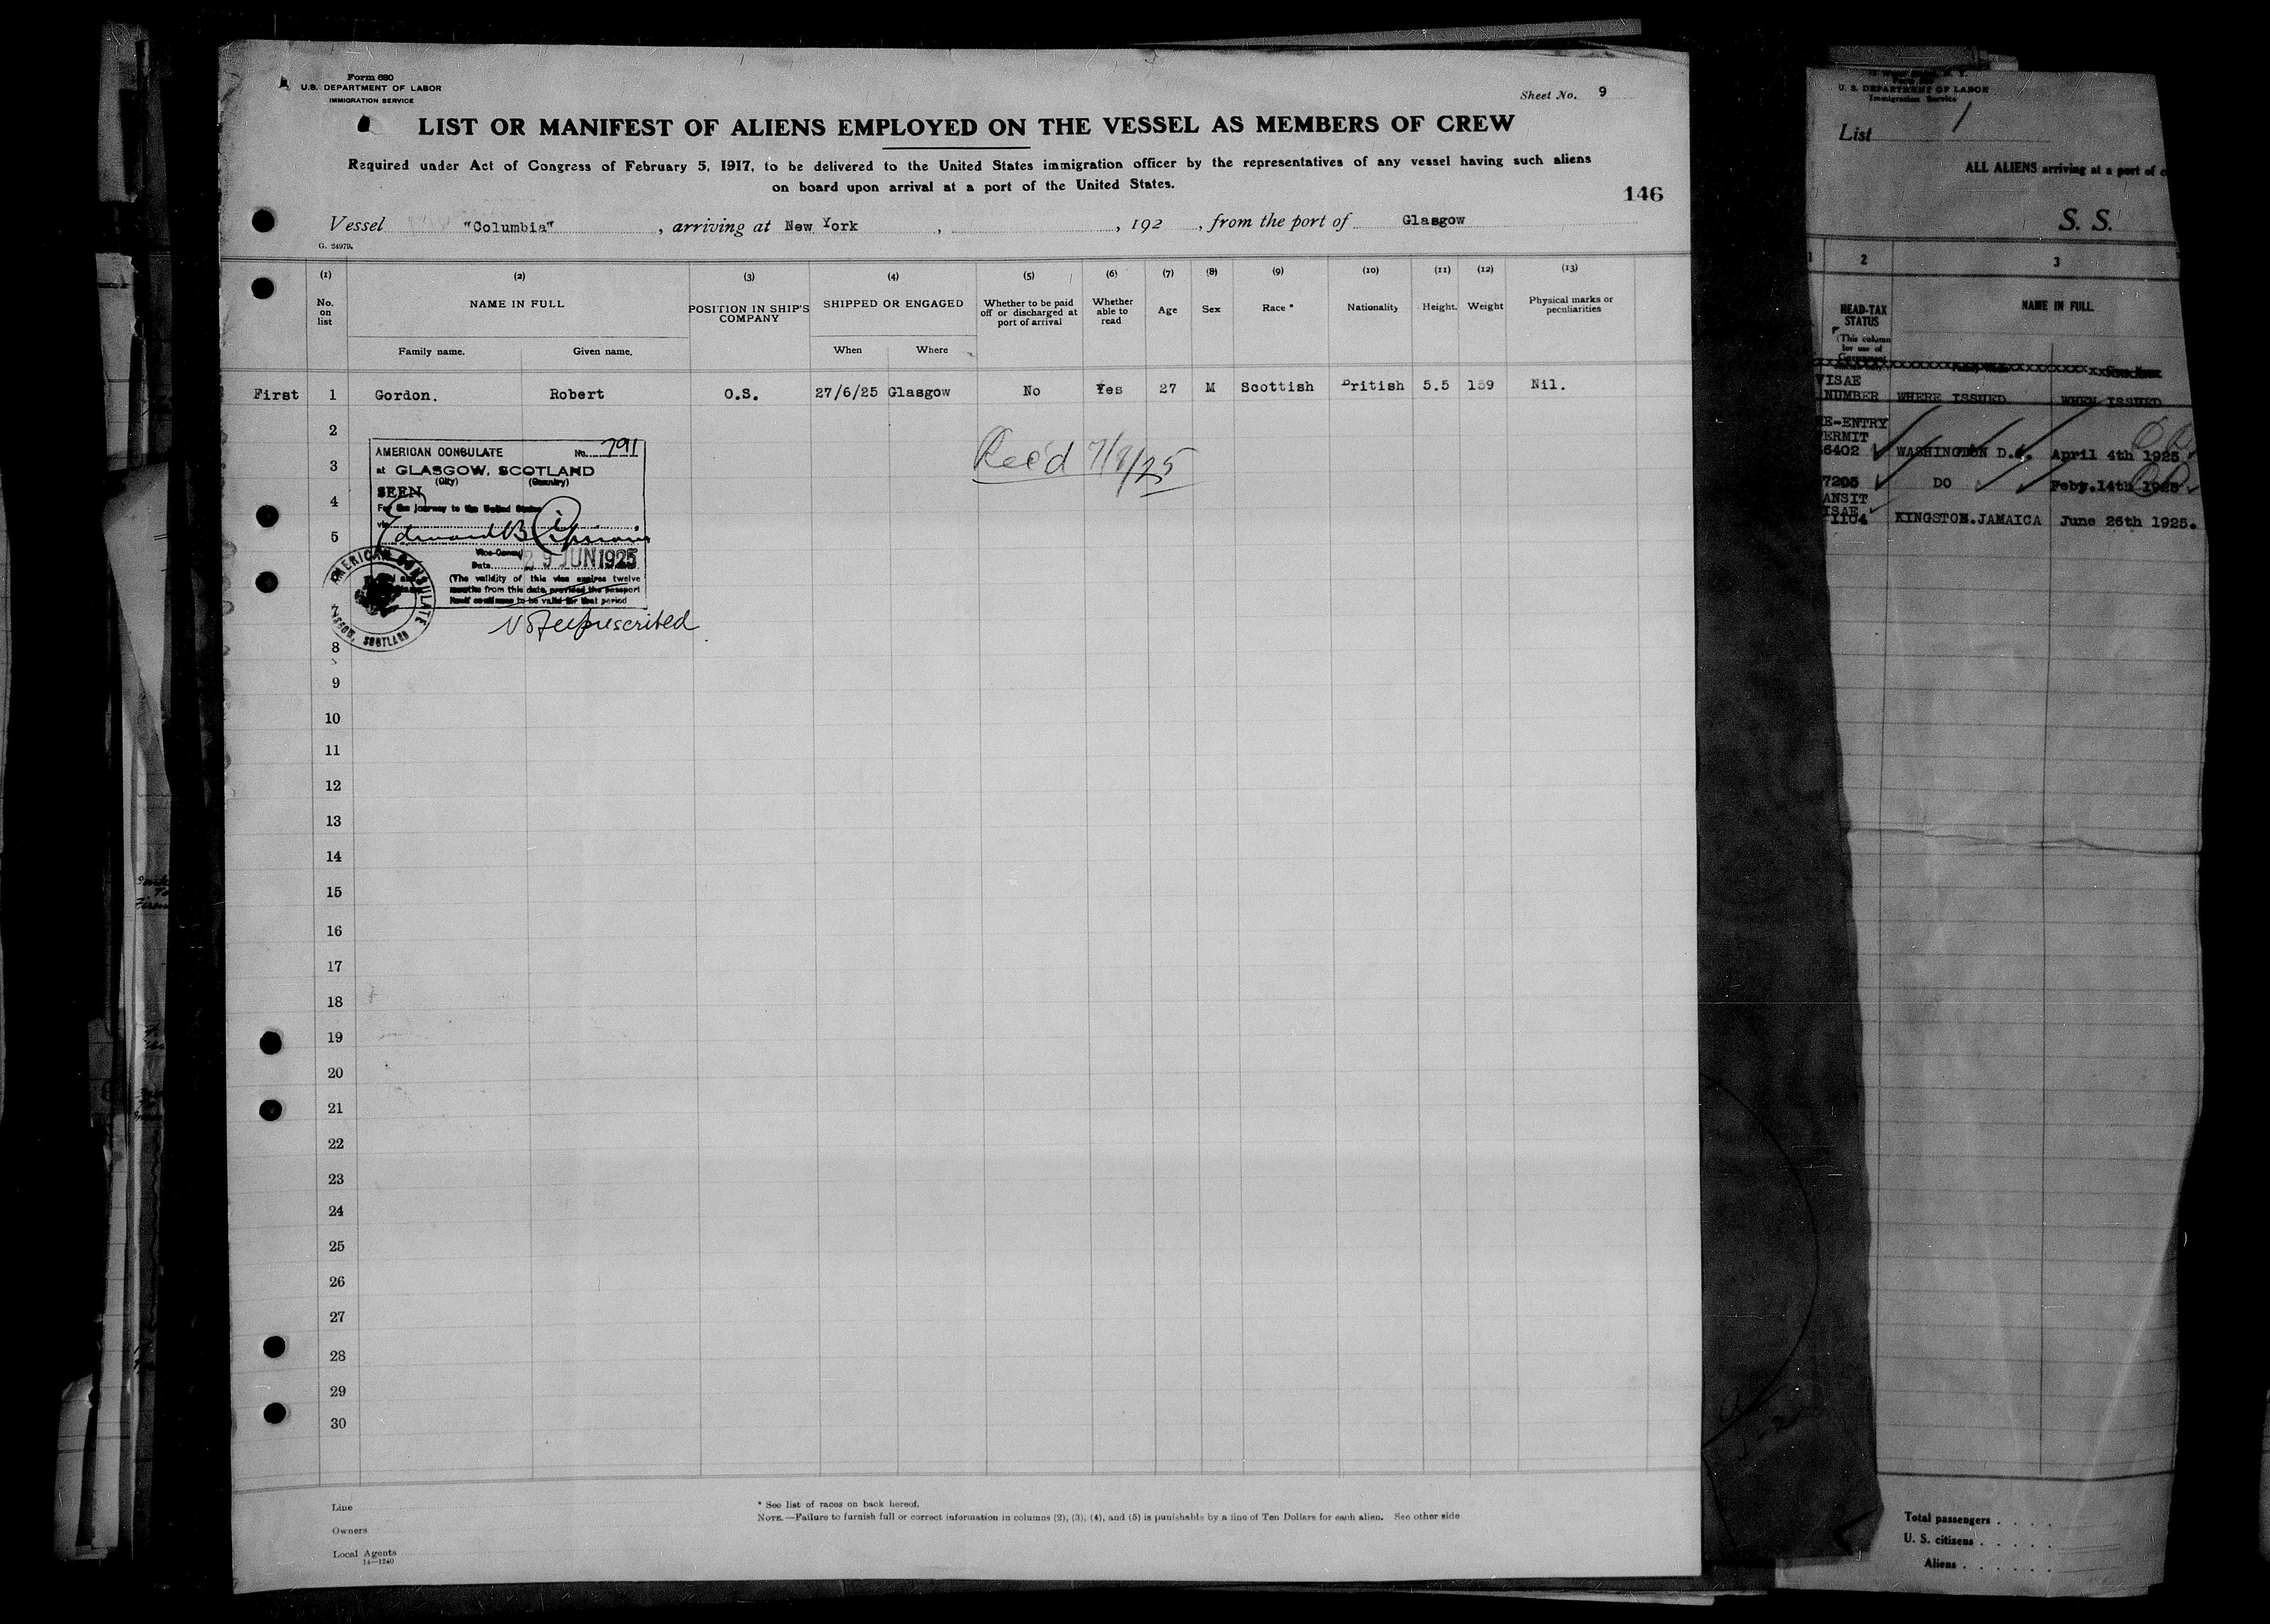 Form 680
U.S. DEPARTMENT OF LABOR
IMMIGRATION SERVICE
Sheet No. 9
LIST OR MANIFEST OF ALIENS EMPLOYED ON THE VESSEL AS MEMBERS OF CREW
Required under Act of Congress of February 5, 1917, to be delivered to the United States immigration officer by the representatives of any vessel having such aliens
on board upon arrival at a port of the United States.
146
Vessel "Columbia", arriving at New York, , 192 , from the port of Glasgow
G. 24979.
(1) (2) (3) (4) (5) (6) (7) (8) (9) (10) (11) (12) (13)
No. on list
NAME IN FULL
POSITION IN SHIP'S COMPANY
SHIPPED OR ENGAGED
Whether to be paid off or discharged at port of arrival
Whether able to read
Age
Sex
Race *
Nationality
Height.
Weight
Physical marks or peculiarities
Family name. Given name. When Where
First 1 Gordon. Robert O.S. 27/6/25 Glasgow No Yes 27 M Scottish British 5.5 159 Nil.
2
3
4
5
7
8
9
10
11
12
13
14
15
16
17
18
19
20
21
22
23
24
25
26
27
28
29
30
AMERICAN CONSULATE No. 791
at GLASGOW, SCOTLAND
(City) (Country)
SEEN
For the journey to the United States
via
Edward B
Vice Consul
Date 29 JUN 1925
(The validity of this visa expires twelve
months from this date, provided the passport
itself continues to be valid for that period
AMERICAN CONSULATE
SCOTLAND
No fee prescribed
Rec'd 7/8/25
Line
Owners
Local Agents
14—1240
* See list of races on back hereof.
NOTE.—Failure to furnish full or correct information in columns (2), (3), (4), and (5) is punishable by a fine of Ten Dollars for each alien. See other side
U. S. DEPARTMENT OF LABOR
Immigration Service
List 1
ALL ALIENS arriving at a port of
S. S.
2 3
HEAD-TAX STATUS
(This column for use of Government
NAME IN FULL
VISAE
NUMBER WHERE ISSUED WHEN ISSUED
E-ENTRY
ERMIT
6402 WASHINGTON D.C. April 4th 1925
7205 DO Feby.14th 1925
ANSIT
ISAE
1104 KINGSTON.JAMAICA June 26th 1925.
Total passengers . . . .
U. S. citizens . . . . .
Aliens . . . . . .